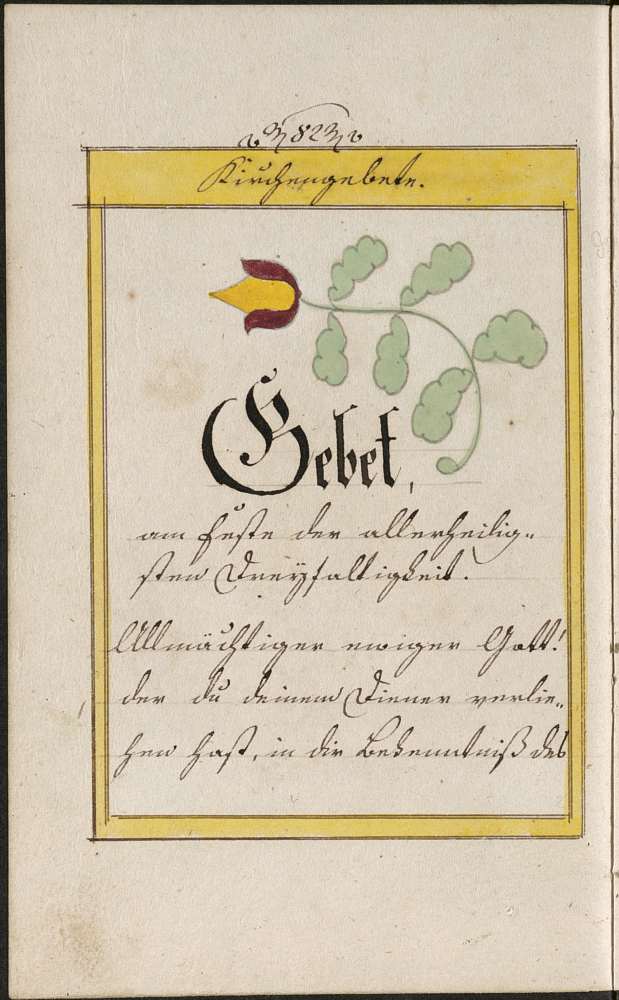 82
Kirchengebete.
Gebet,
am Feste der allerheilig„
sten Dreyfaltigkeit.
Allmächtiger ewiger Gott!
der du deinem Diener verlie„
hen hast, in der Bekenntniß des